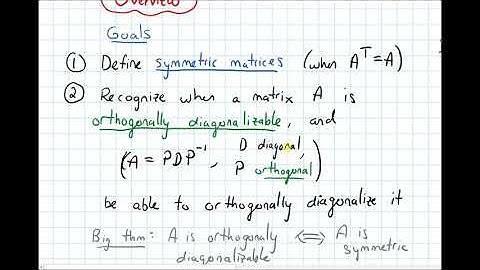 Overview
Goals
① Define symmetric matrices (when Aᵀ=A)
② Recognize when a matrix A is
orthogonally diagonalizable, and
(A = PDP⁻¹, D diagonal,
P orthogonal)
be able to orthogonally diagonalize it
Big thm: A is orthogonaly ⟺ A is
diagonalizable symmetric